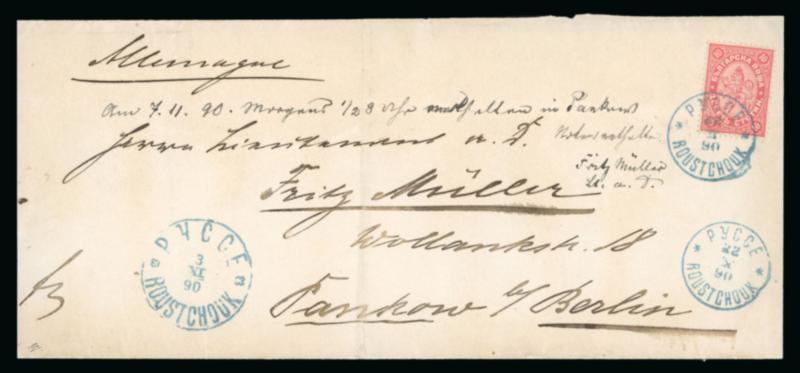 Allemagne
Am 7. 11. 90. Morgens 1/2 8 Uhr erhalten in Pankow
Herrn Lieutenant a. D.
Fritz Müller
Lt. a. D.
Fritz Müller
Wollankstr. 18
Pankow b/ Berlin
10 БЪЛГАРСКА ПОЩА 10
РУССЕ
90
ROUSTCHOUK
РУССЕ
3
XI
90
ROUSTCHOUK
РУССЕ
22
X
90
ROUSTCHOUK